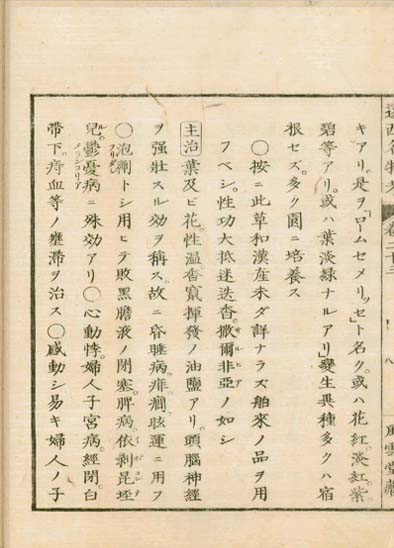 遠西名物考 卷二十三 八 風雲堂藏
キアリ。是ヲ「ロームセメリッセ」ト名ク。或ハ花紅。淡紅。紫
碧等アリ。或ハ葉淡綠ナルアリ」變生異種多クハ宿
根セズ。多ク園ニ培養ス
○按ニ此草和漢産未ダ詳ナラズ舶來ノ品ヲ用
フベシ。性功大抵迷迭香。撒爾非亞ノ如シ
サルヒア
主治 葉及ビ花。性溫香竄揮發ノ油鹽アリ。頭腦神經
ヲ强壯スル効ヲ稱ス。故ニ昏睡病。癇。眩運ニ用フ
○泡劑トシ用ヒテ敗黑膽液ノ閉塞。脾病。依剝昆垤
兒。鬱憂病ニ殊効アリ○心動悸。婦人子宮病。經閉。白
メランコリア
帶下。痔血等ノ壅滯ヲ治ス○感動シ易キ婦人ノ子